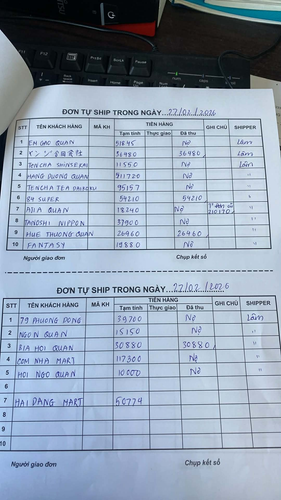 ĐƠN TỰ SHIP TRONG NGÀY 27/02/2026
STT TÊN KHÁCH HÀNG MÃ KH TIỀN HÀNG GHI CHÚ SHIPPER
Tạm tính Thực giao Đã thu
1 EM GAO QUAN 51645 Nợ Lâm
2 36480 36480 Lâm
3 TENCHA SHINSEKAI 11550 Nợ Lâm
4 HANG DUONG QUAN 911720 Nợ "
5 TENCHA TEA DAIKOKU 95157 Nợ "
6 84 SUPER 54210 54210 "
7 ASIA QUAN 18240 Nợ 210170 "
8 TANOSHI NIPPON 37900 Nợ "
9 HUE THUONG QUAN 26460 26460 "
10 FANTASY 19880 Nợ "
Người giao đơn Chụp kết sổ
ĐƠN TỰ SHIP TRONG NGÀY 27/02/2026
STT TÊN KHÁCH HÀNG MÃ KH TIỀN HÀNG GHI CHÚ SHIPPER
Tạm tính Thực giao Đã thu
1 79 PHUONG DONG 39700 Nợ Lâm
2 NGON QUAN 15150 Nợ "
3 BIA HOI QUAN 30880 30880 "
4 COM NHA MART 117300 Nợ "
5 HOI NGO QUAN 10000 Nợ "
6
7 HAI DANG MART 50774
8
9
10
Người giao đơn Chụp kết sổ